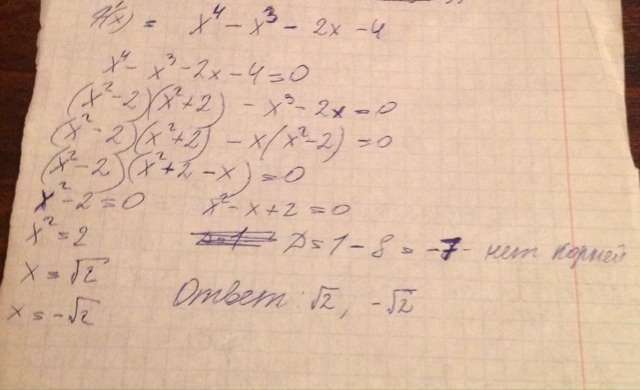 f'(x) = x⁴ - x³ - 2x - 4
x⁴ - x³ - 2x - 4 = 0
(x² - 2)(x² + 2) - x³ - 2x = 0
(x² - 2)(x² + 2) - x(x² - 2) = 0
(x² - 2)(x² + 2 - x) = 0
x² - 2 = 0 x² - x + 2 = 0
x² = 2 D = 1 - 8 = -7 - нет корней
x = √2
x = -√2
Ответ: √2, -√2